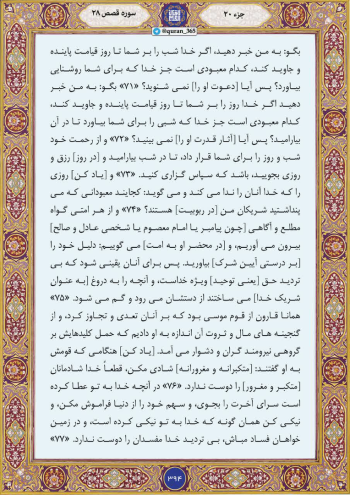 جزء ۲۰
سوره قصص ۲۸
@quran_365
بگو: به من خبر دهید، اگر خدا شب را بر شما تا روز قیامت پاینده
و جاوید کند، کدام معبودی است جز خدا که برای شما روشنایی
بیاورد؟ پس آیا [دعوت او را] نمی شنوید؟ «۷۱» بگو: به من خبر
دهید اگر خدا روز را بر شما تا روز قیامت پاینده و جاوید کند،
کدام معبودی است جز خدا که شبی را برای شما بیاورد تا در آن
بیارامید؟ پس آیا [آثار قدرت او را] نمی بینید؟ «۷۲» و از رحمت خود
شب و روز را برای شما قرار داد، تا در شب بیارامید و [در روز] رزق و
روزی بجویید، باشد که سپاس گزاری کنید. «۷۳» و [یاد کن] روزی
را که خدا آنان را ندا می کند و می گوید: کجایند معبودانی که می
پنداشتید شریکان من [در ربوبیت] هستند؟ «۷۴» و از هر امتی گواه
مطلع و آگاهی [چون پیامبر یا امام معصوم یا شخصی عادل و صالح]
بیرون می آوریم، و [در محضر او به امت] می گوییم: دلیل خود را
[بر درستی آیین شرک] بیاورید. پس برای آنان یقینی شود که بی
تردید حق [یعنی توحید] ویژه خداست، و آنچه را به دروغ [به عنوان
شریک خدا] می ساختند از دستشان می رود و گم می شود. «۷۵»
همانا قارون از قوم موسی بود که بر آنان تعدی و تجاوز کرد، و از
گنجینه های مال و ثروت آن اندازه به او دادیم که حمل کلیدهایش بر
گروهی نیرومند گران و دشوار می آمد. [یاد کن] هنگامی که قومش
به او گفتند: [متکبرانه و مغرورانه] شادی مکن، قطعاً خدا شادمانان
[متکبر و مغرور] را دوست ندارد. «۷۶» در آنچه خدا به تو عطا کرده
است سرای آخرت را بجوی، و سهم خود را از دنیا فراموش مکن، و
نیکی کن همان گونه که خدا به تو نیکی کرده است، و در زمین
خواهان فساد مباش، بی تردید خدا مفسدان را دوست ندارد. «۷۷»
۳۹۴